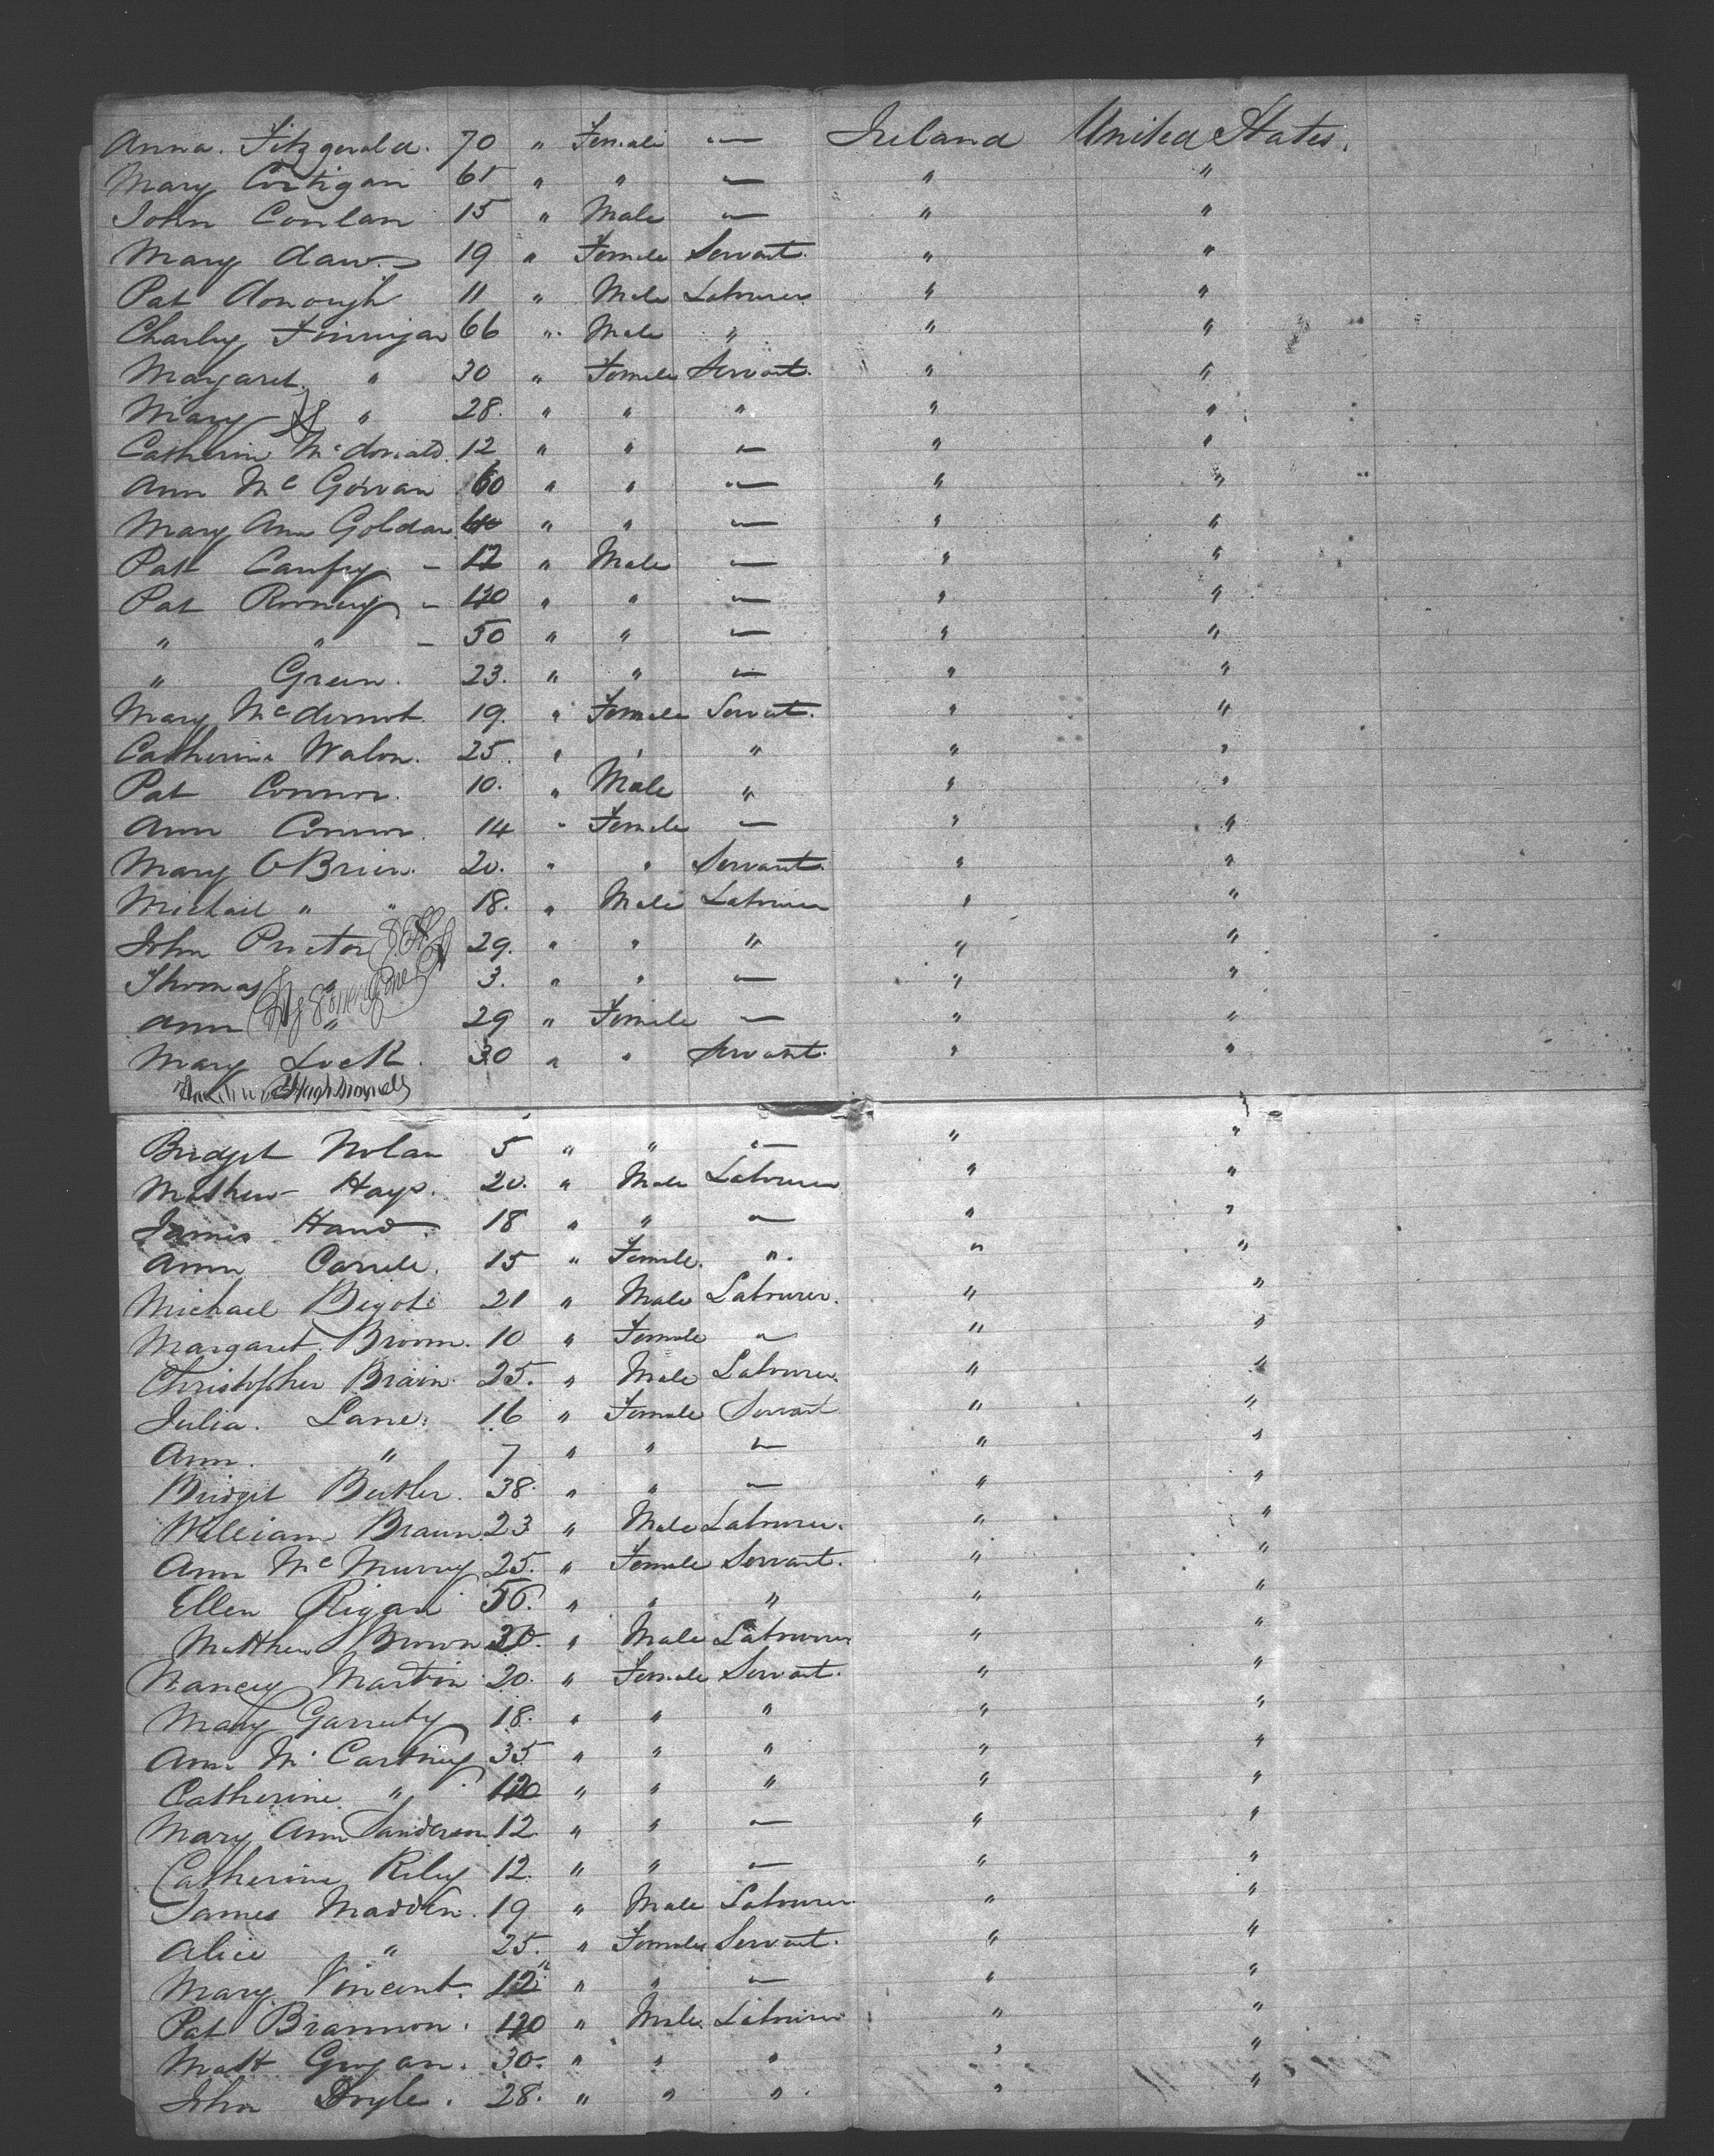 Anna. Fitzgerald. 70 " Female — Ireland United States.
Mary Cortigan 65 " " — " "
John Conlan 15 " Male — " "
Mary daws 19 " Female Servant. " "
Pat donough 11 " Male Labourer " "
Charley Finnigan 66 " Male " " "
Margaret " 30 " Female Servant. " "
Mary " 28. " " " " "
Catherin Mcdonald. 12 " " — " "
Ann Mc Gowan 60 " " — " "
Mary Ann Goldan " " — " "
Pat Canfry - 12 " Male — " "
Pat Rooney - " " — " "
" " - 50 " " — " "
" Green. 23. " " — " "
Mary Mcdermot. 19. " Female Servant. " "
Catherine Walon. 25. " " " " "
Pat Connor. 10. " Male " " "
Ann Connor. 14 " Female — " "
Mary OBrien. 20. " " Servant. " "
Michail " " 18. " Male Labourer " "
John Proctor 29. " " " " "
Thomas " 3. " " — " "
Ann " 29 " Female — " "
Mary Lock. 30 " " Servant. " "
Bridget Nolan 5 " " — " "
Mathew Hays. 20. " Male Labourer " "
James Hand. 18 " " — " "
Ann Carrele. 15 " Female. ". " "
Michael Bigot. 21 " Male Labourer. " "
Margaret Broom. 10 " Female — " "
Christopher Brain. 25. " Male Labourer. " "
Julia. Lane. 16 " Female Servant " "
Ann. " 7 " " — " "
Bridget Butler. 38. " " — " "
William Braun 23 " Male Labourer. " "
Ann Mc Murry 25. " Female Servant. " "
Ellen Rigan 50. " " " " "
Matthew Brown 30. " Male Labourer " "
Nancy Martin 20. " Female Servant. " "
Mary Garruty 18. " " " " "
Ann. Mc Cartney 35 " " " " "
Catherine " " " " " "
Mary Ann Sanderson. 12. " " — " "
Catherine Riley 12. " " — " "
James Madden. 19 " Male Labourer " "
Alice " 25. " Female Servant. " "
Mary Vincent. 12 " " — " "
Pat Brannon. " Male Labourer " "
Matt Grogan. 30. " " " " "
John Doyle. 28. " " ". " "